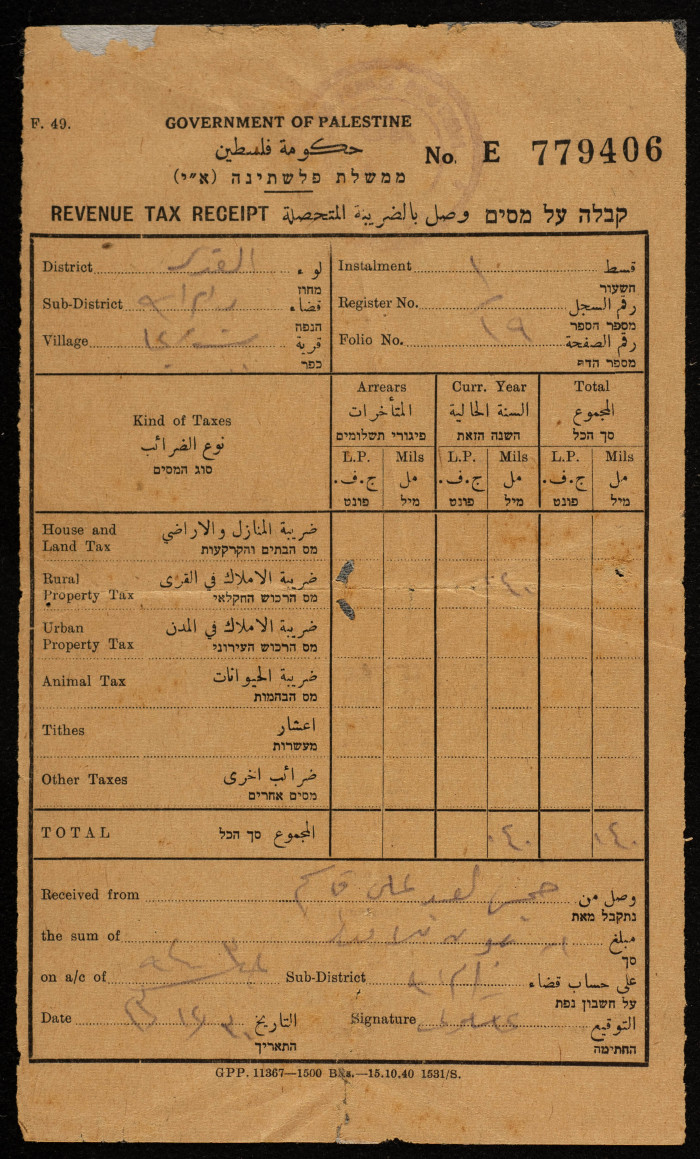 F. 49.
GOVERNMENT OF PALESTINE
حكومة فلسطين
ממשלת פלשתינה (א״י)
No. E 779406
REVENUE TAX RECEIPT وصل بالضريبة المتحصلة קבלה על מסים
District القدس لواء מחוז
Instalment ١ قسط השעור
Sub-District رام الله قضاء הנפה
Register No. رقم السجل מספר הספר
Village قرية כפר
Folio No. ١٩ رقم الصفحة מספר הדף
Kind of Taxes
نوع الضرائب
סוג המסים
Arrears Curr. Year Total
المتأخرات السنة الحالية المجموع
פיגורי תשלומים השנה הזאת סך הכל
L.P. Mils L.P. Mils L.P. Mils
ج.ف. مل ج.ف. مل ج.ف. مل
פונט מיל פונט מיל פונט מיל
House and ضريبة المنازل والاراضي
Land Tax מס הבתים והקרקעות
Rural ضريبة الاملاك في القرى ٠٤٠
Property Tax מס הרכוש החקלאי
Urban ضريبة الاملاك في المدن
Property Tax מס הרכוש העירוני
Animal Tax ضريبة الحيوانات
מס הבהמות
Tithes اعشار
מעשרות
Other Taxes ضرائب اخرى
מסים אחרים
TOTAL סך הכל المجموع ٠٤٠ ٠٤٠
Received from وصل من
נתקבל מאת
the sum of مبلغ
סך
on a/c of Sub-District رام الله على حساب قضاء
על חשבון נפת
Date التاريخ Signature التوقيع
התאריך החתימה
GPP. 11367—1500 Bks.—15.10.40 1531/S.